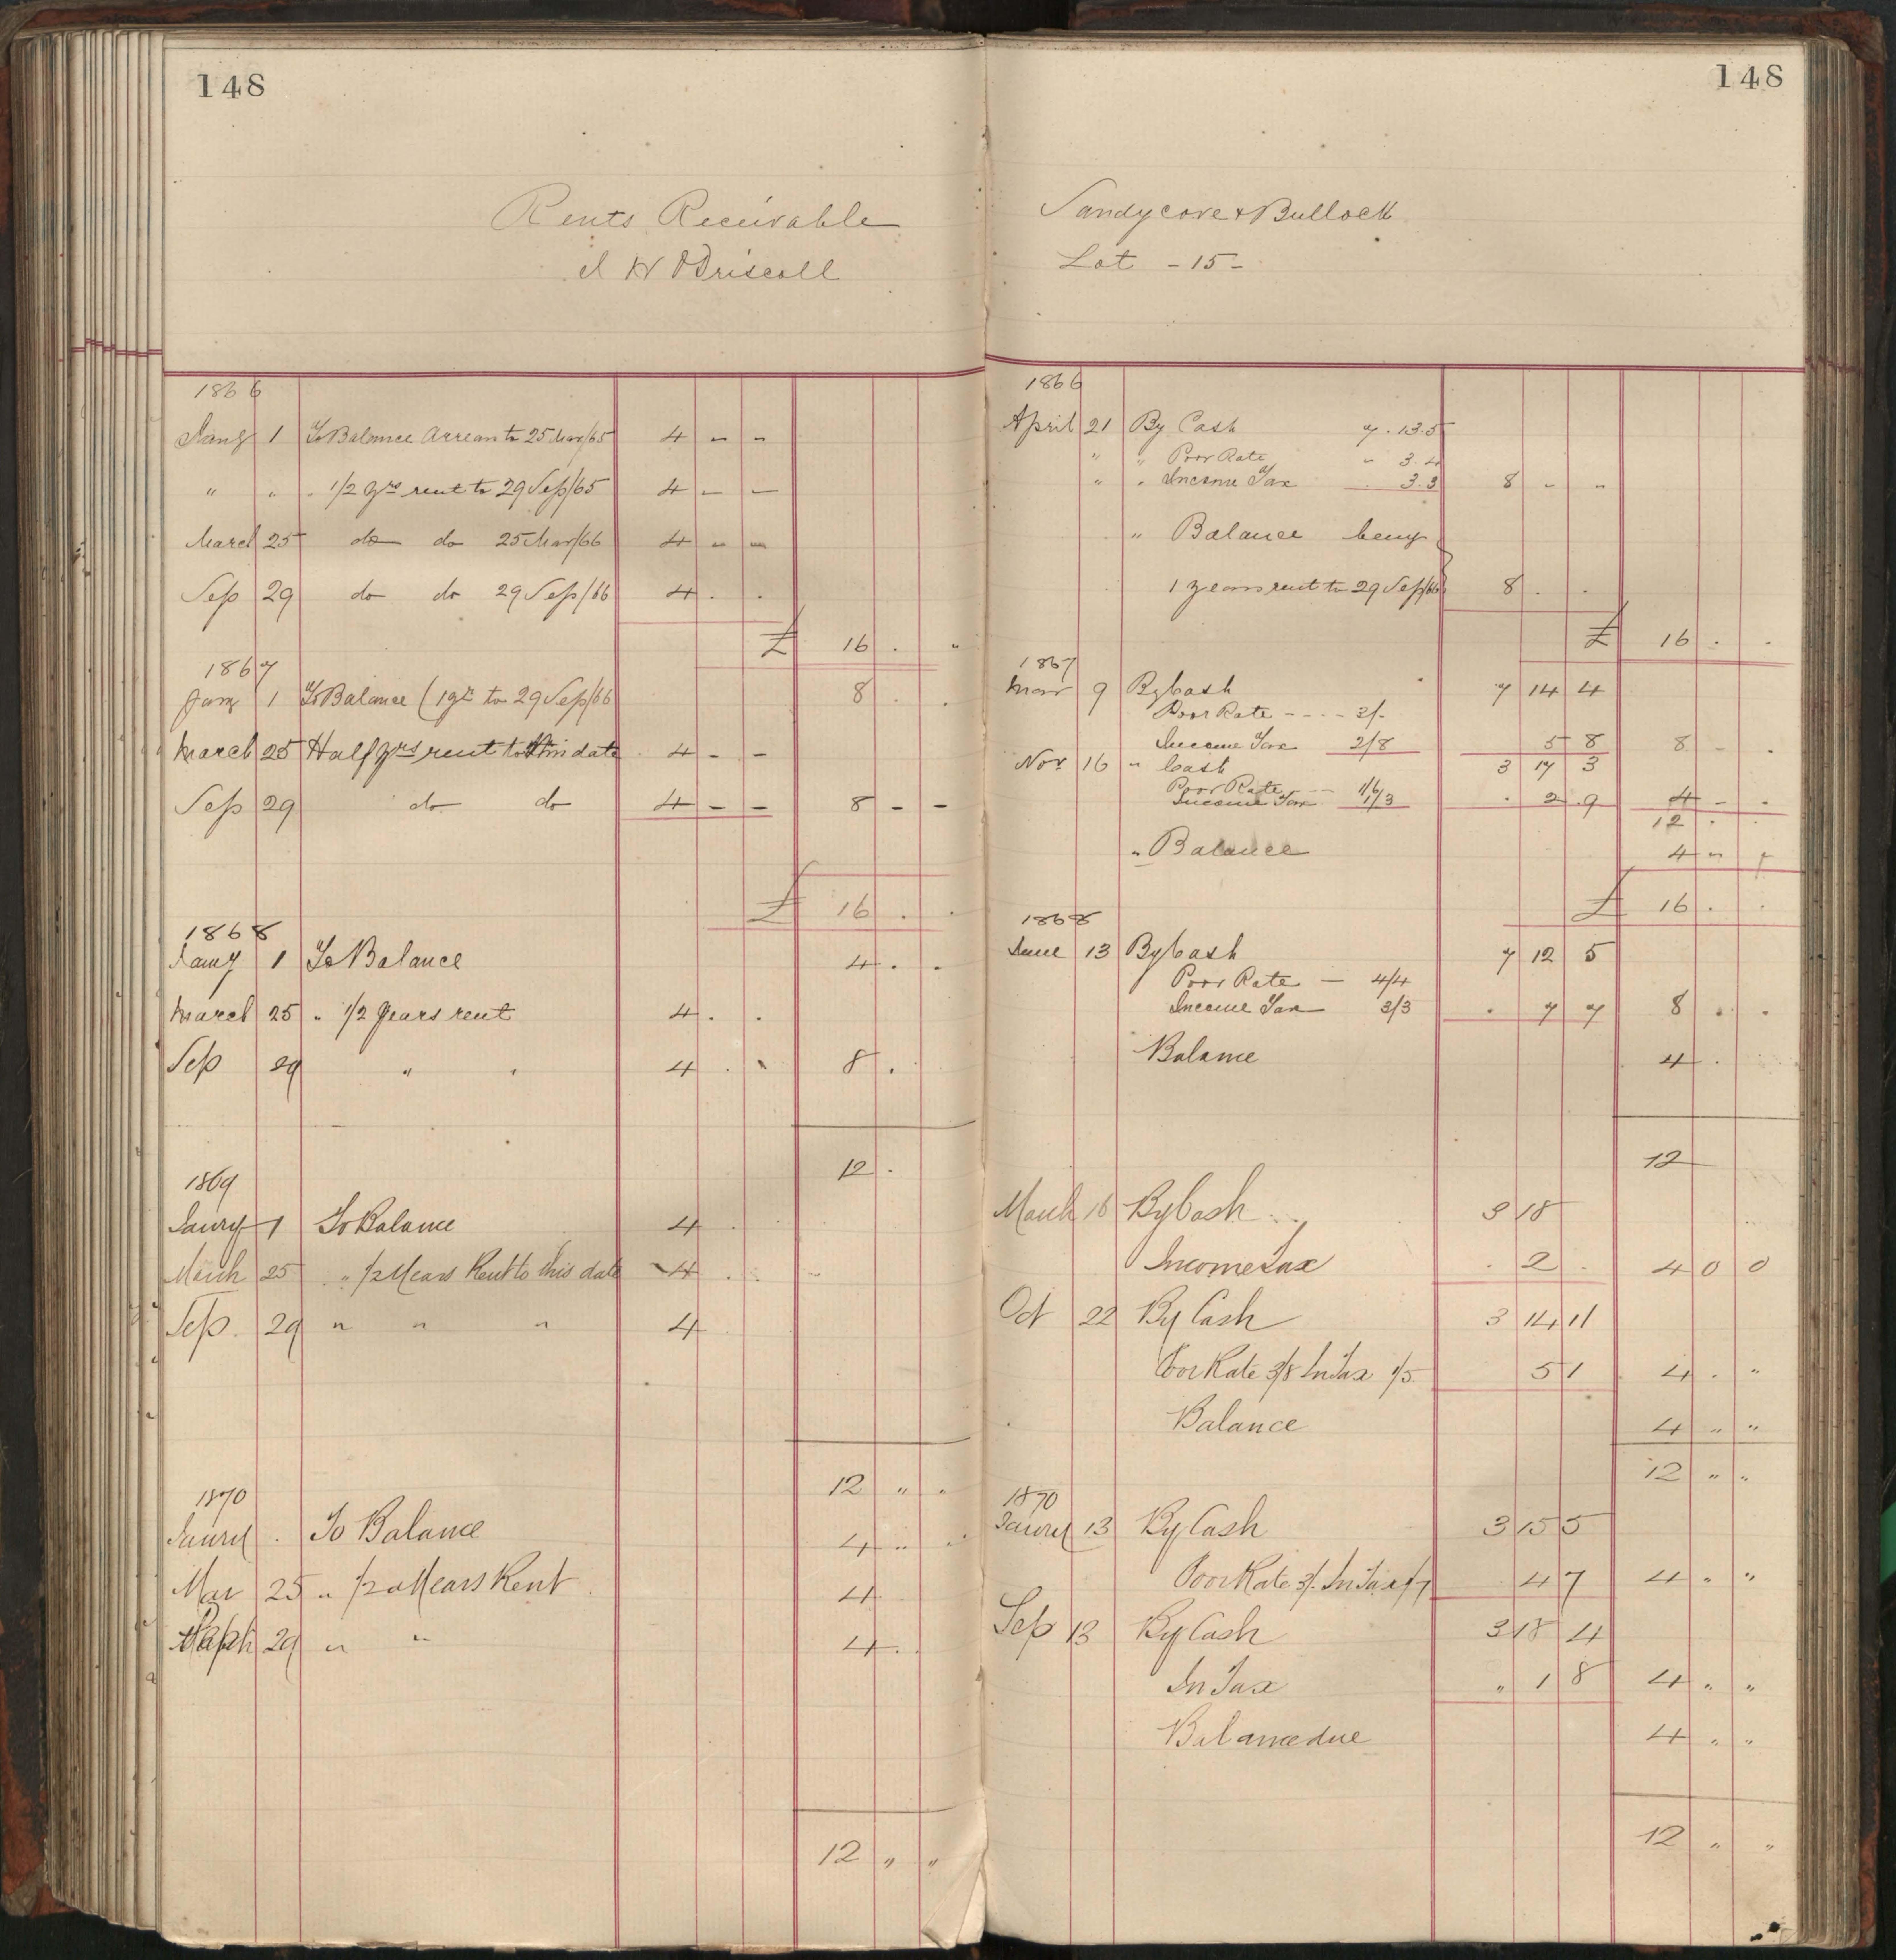 148
Rents Receivable
W O'Driscoll
1866
Jany 1 To Balance Arrears to 25 Mar/65 4 - -
" " " 1/2 yrs rent to 29 Sep/65 4 - -
March 25 do do 25 Mar/66 4 - -
Sep 29 do do 29 Sep/66 4 . .
£ 16 . "
1867
Jany 1 To Balance (1 yr to 29 Sep/66 8 . .
March 25 Half yrs rent to this date 4 - -
Sep 29 do do 4 - - 8 - -
£ 16 . .
1868
Jany 1 To Balance 4 . .
March 25 " 1/2 years rent 4 . .
Sep 29 " " 4 . . 8 .
12 .
1869
Jany 1 To Balance 4 .
March 25 " 1/2 Years Rent to this date 4 .
Sep. 29 " " " 4
12 " "
1870
Jany . To Balance 4 " "
Mar 25 " 1/2 a Years Rent 4
29 " " 4 . .
12 " "
148
Sandycove & Bullock
Lot - 15 -
1866
April 21 By Cash 7 . 13 . 5
" " Poor Rate " 3 . 4
" " Income Tax . 3 . 3 8 - -
" Balance being
1 years rent to 29 Sep/66 8 . .
£ 16 . .
1867
Mar 9 By Cash 7 14 4
Poor Rate - - - - 3/-
Income Tax 2/8 5 8 8 - .
Novr 16 " Cash 3 17 3
Poor Rate - - 1/6
Income Tax 1/3 . 2 . 9 4 - .
12 . .
" Balance 4 - -
£ 16 . .
1868
June 13 By Cash 7 12 5
Poor Rate - 4/4
Income Tax 3/3 . 7 7 8 . .
Balance 4 .
12
March 16 By Cash 3 18
Income Tax . 2 . 4 0 0
Oct 22 By Cash 3 14 11
Poor Rate 3/8 In Tax 1/5 5 1 4 . "
Balance 4 " "
12 " "
1870
Jany 13 By Cash 3 15 5
Poor Rate 3/- In Tax 1/7 4 7 4 " "
Sep 13 By Cash 3 18 4
In Tax " 1 8 4 " "
Balance due 4 " "
12 " "